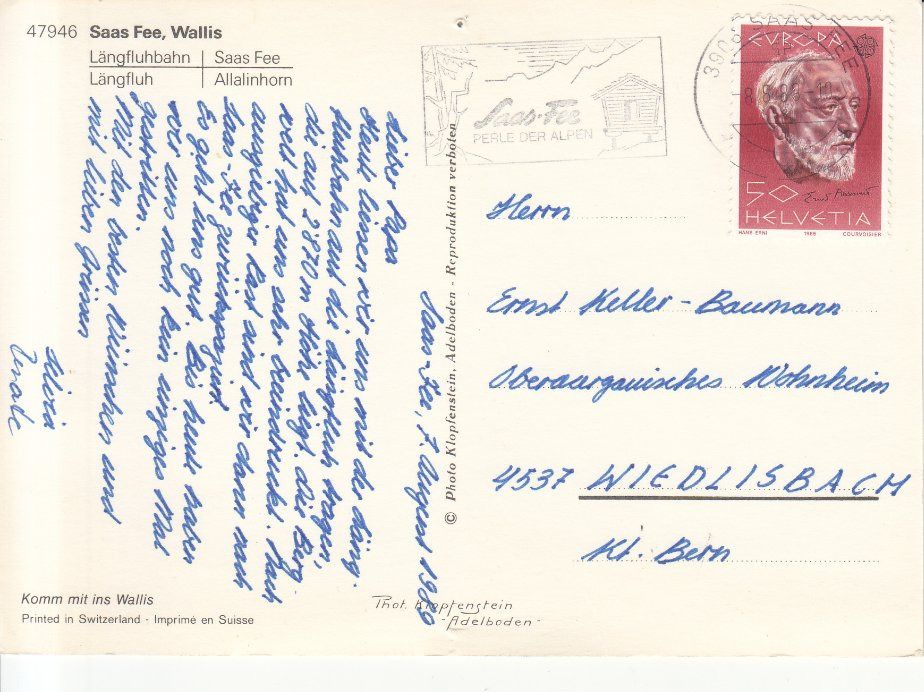 47946 Saas Fee, Wallis
Längfluhbahn | Saas Fee
Längfluh | Allalinhorn
Saas-Fee
PERLE DER ALPEN
3906 SAAS-FEE
8.8.89-19
EUROPA
50
HELVETIA
HANS ERNI 1985 COURVOISIER
Saas-Fee, 7. August 1989
Lieber Papa
Heute liessen wir uns mit der Läng-
fluhbahn auf die Längfluh tragen,
die auf 2'870 m Höhe liegt. Die Berg-
welt hat uns sehr beeindruckt. Nach
ausgiebiger Rast sind wir dann nach
Saas-Fee zurückgekehrt.
Es geht uns gut. Bis heute haben
wir uns noch kein einziges Mal
gestritten.
Mit den besten Wünschen und
mit lieben Grüssen
Herrn
Ernst Keller-Baumann
Oberaargauisches Wohnheim
4537 WIEDLISBACH
Kt. Bern
© Photo Klopfenstein, Adelboden - Reproduktion verboten
Komm mit ins Wallis
Printed in Switzerland - Imprimé en Suisse
Phot. Klopfenstein
- Adelboden -